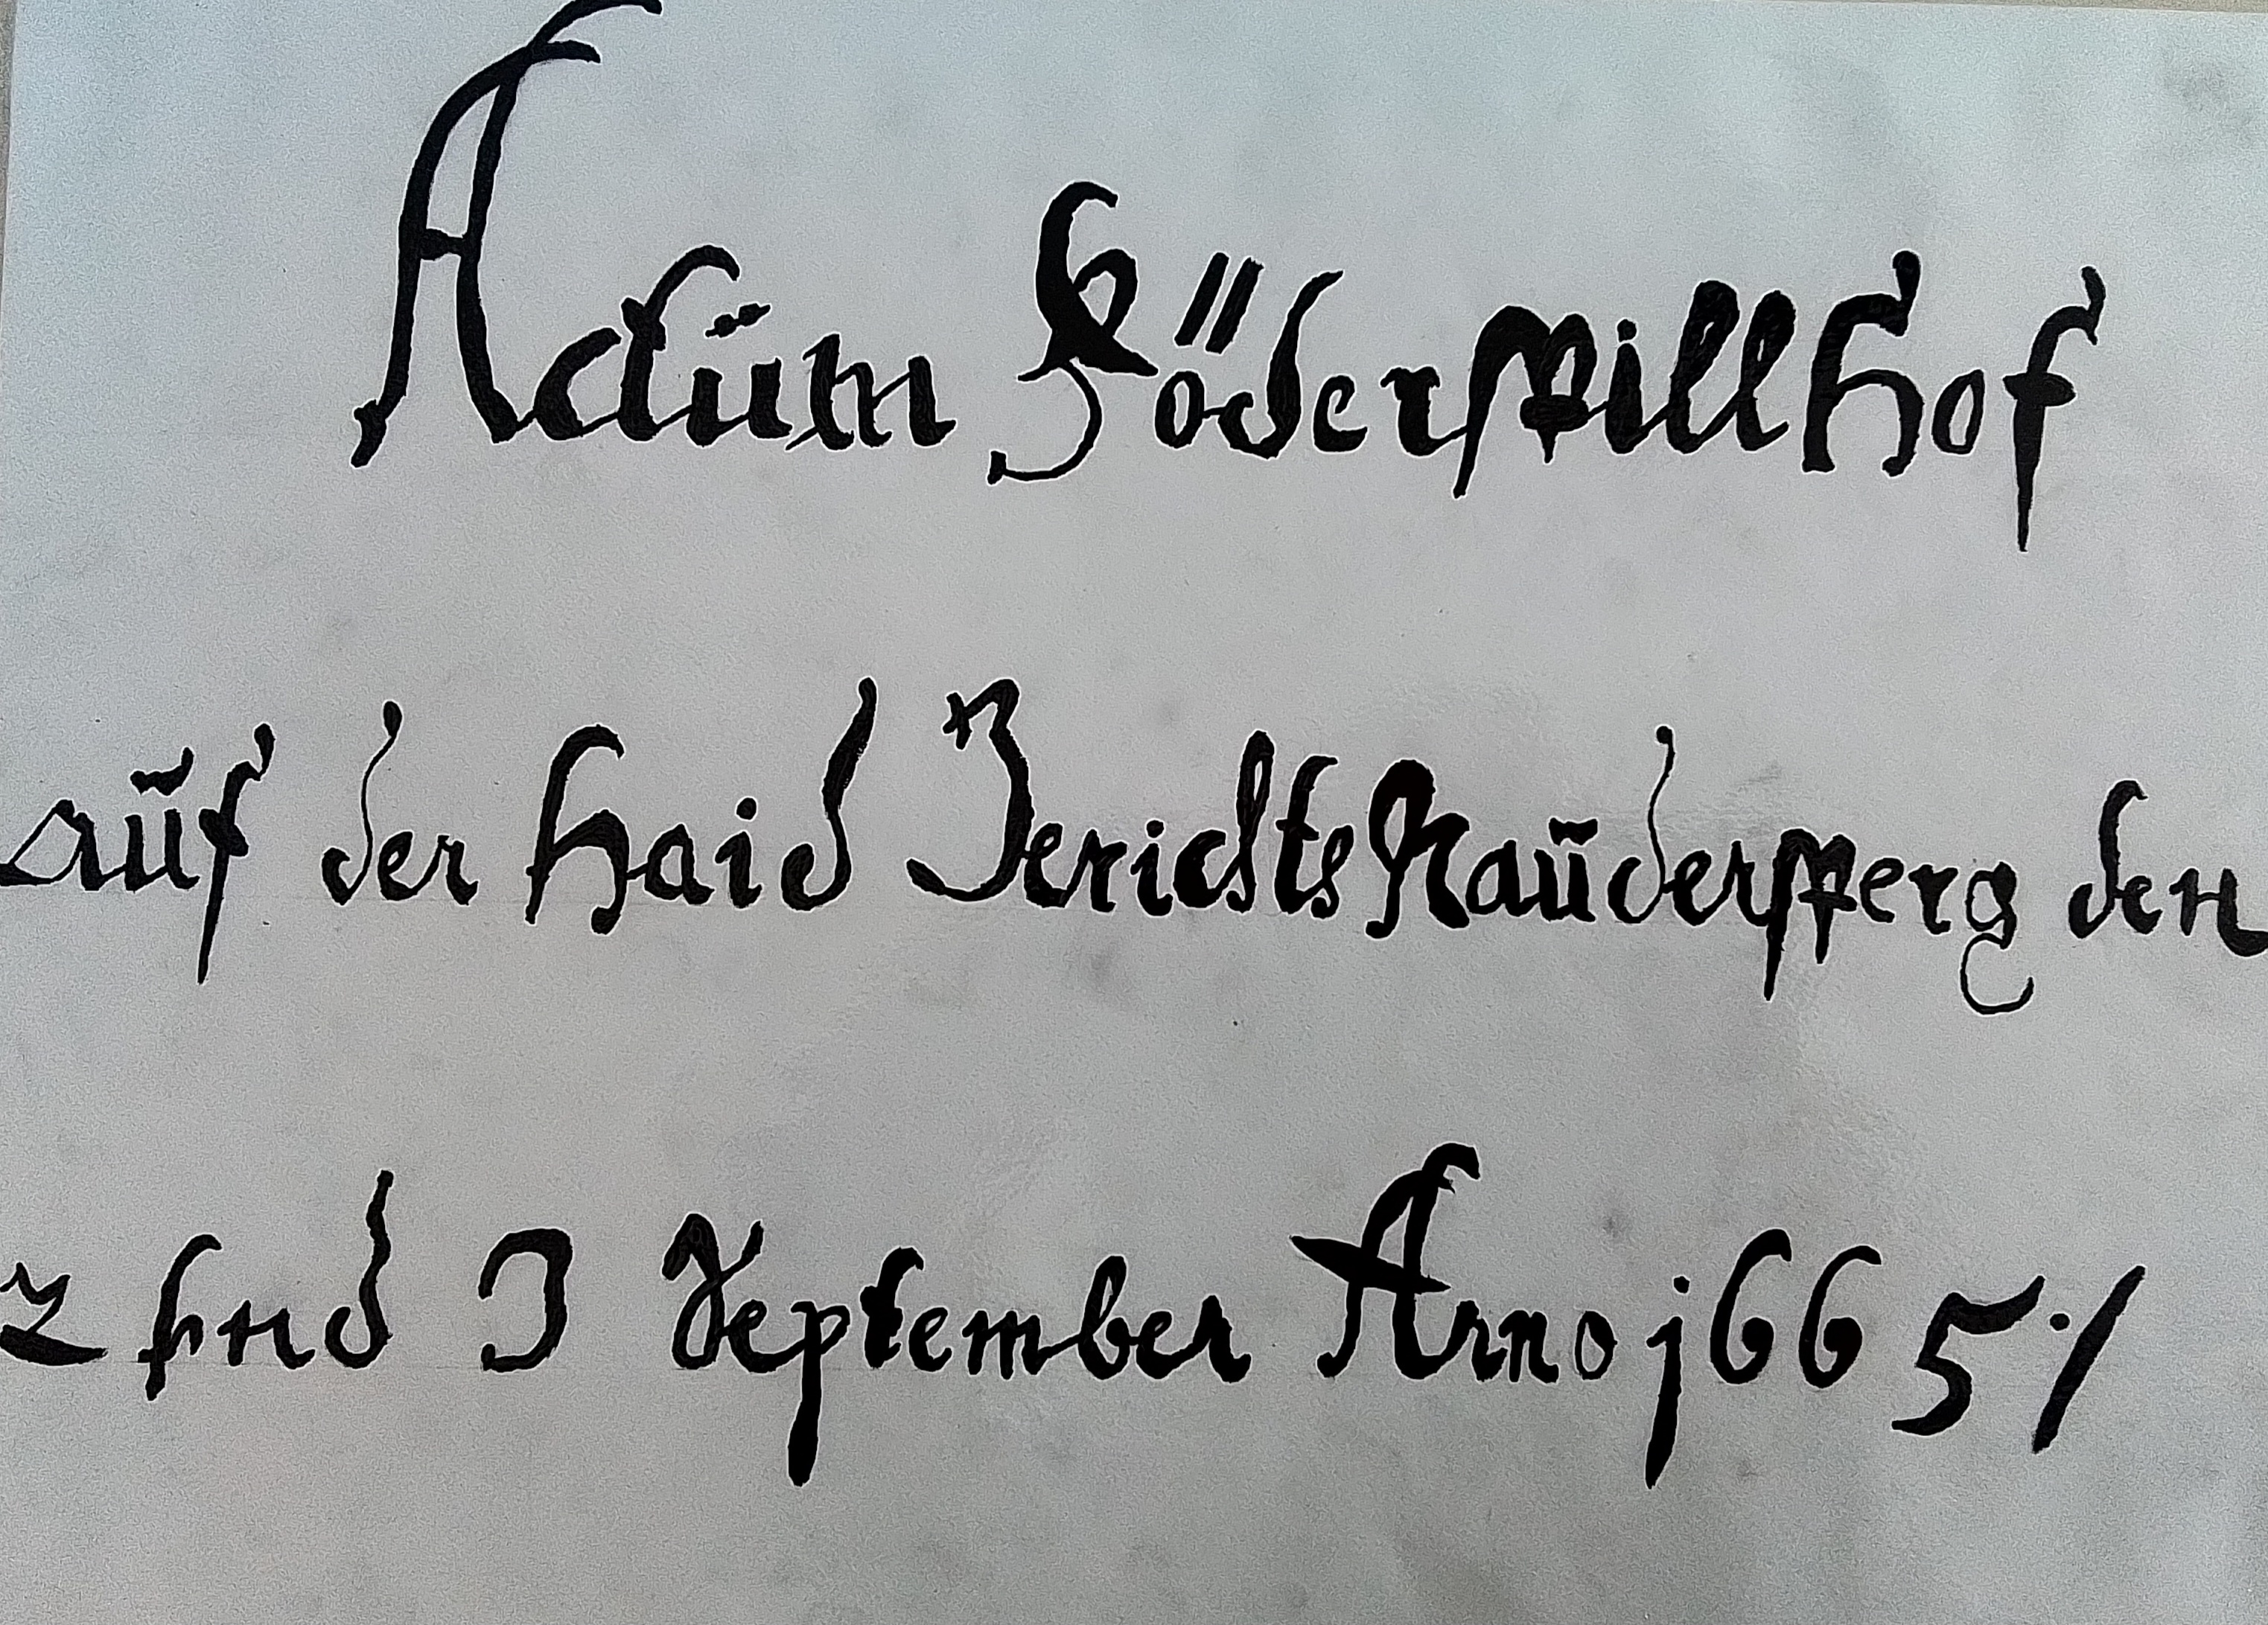 Actüm Söderspillhof
auf der Haid Gerichts Rauderspperg den
2 und 3 September Anno j665 ·/